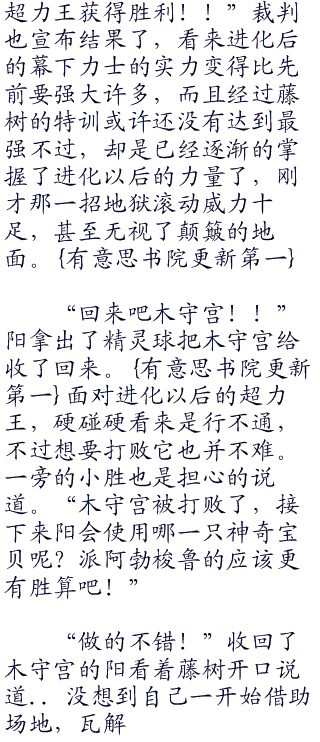 超力王获得胜利！！”裁判
也宣布结果了，看来进化后
的幕下力士的实力变得比先
前要强大许多，而且经过藤
树的特训或许还没有达到最
强不过，却是已经逐渐的掌
握了进化以后的力量了，刚
才那一招地狱滚动威力十
足，甚至无视了颠簸的地
面。{有意思书院更新第一}
“回来吧木守宫！！”
阳拿出了精灵球把木守宫给
收了回来。{有意思书院更新
第一}面对进化以后的超力
王，硬碰硬看来是行不通，
不过想要打败它也并不难。
一旁的小胜也是担心的说
道。“木守宫被打败了，接
下来阳会使用哪一只神奇宝
贝呢？派阿勃梭鲁的应该更
有胜算吧！”
“做的不错！”收回了
木守宫的阳看着藤树开口说
道．．没想到自己一开始借助
场地，瓦解